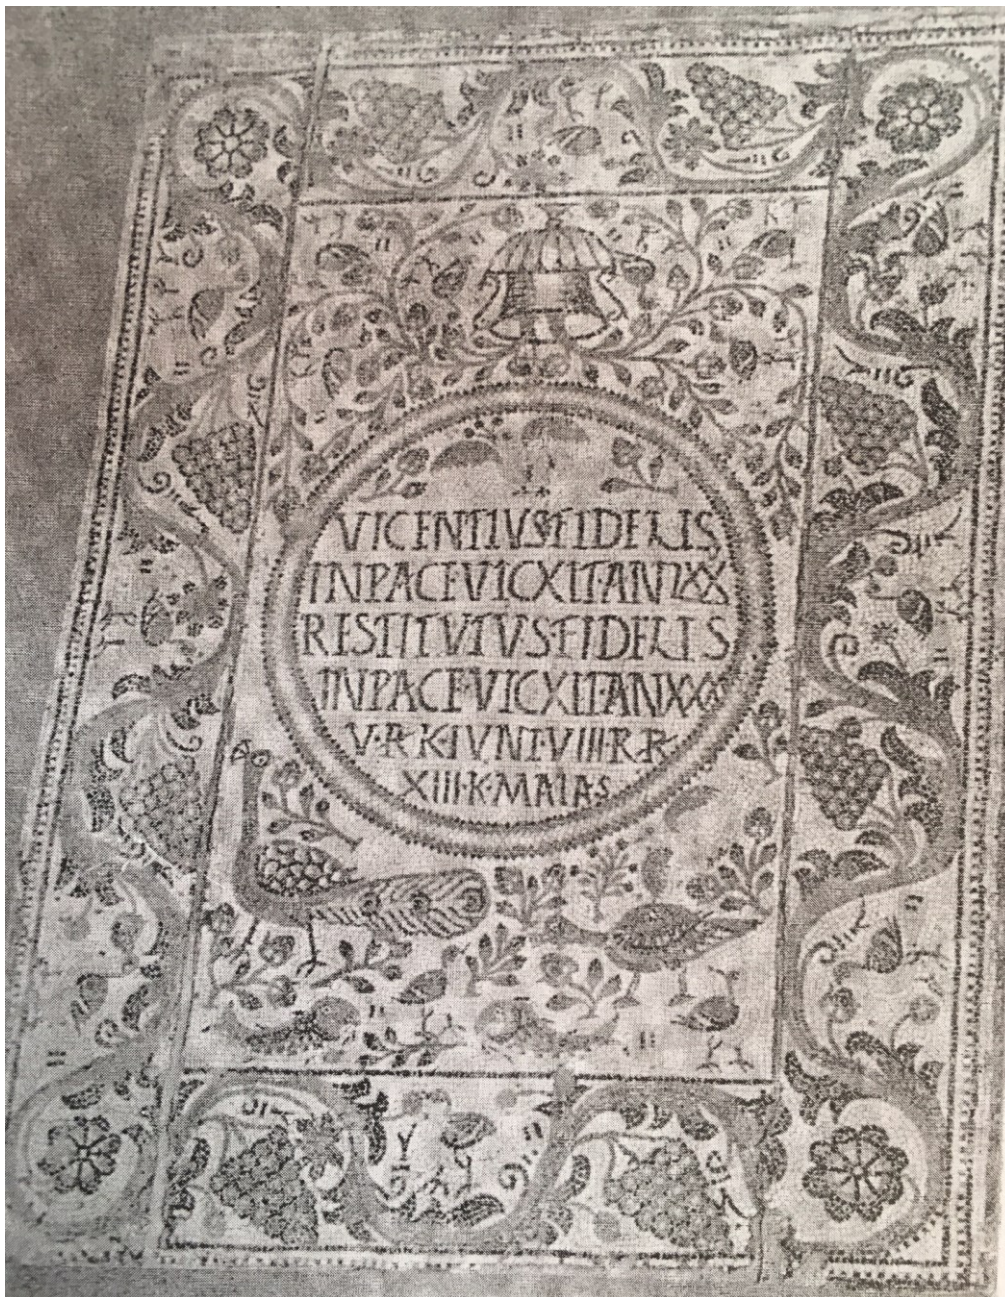 VICENTIVS·FIDELIS
IN PACE·VICXIT·ANNXX
RESTITVTVS·FIDELIS
IN PACE·VICXIT·ANXXX
V·R·K·IVNI·VIII·R·R·
XIII·K·MAIAS